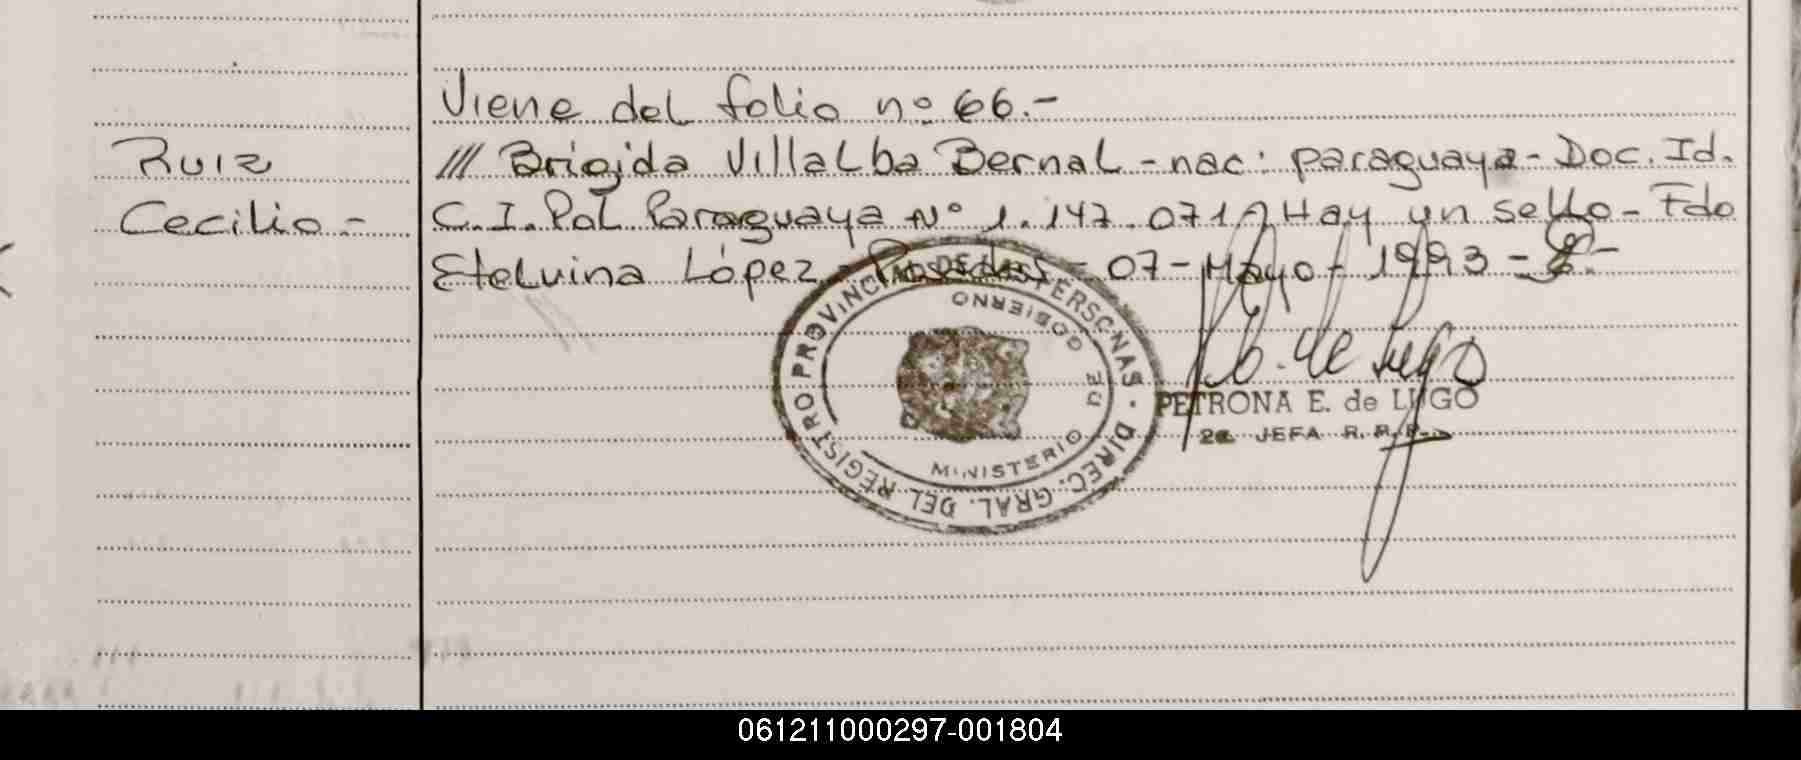 Viene del folio nº 66.-
Ruiz /// Brigida Villalba Bernal - nac: paraguaya - Doc. Id.
Cecilio.- C.I. Pol. Paraguaya Nº 1.147.071 Hay un sello - Fdo
Etelvina López - Posadas - 07 - Mayo - 1993 -
REGISTRO PROVINCIAL DE LAS PERSONAS · DIREC. GRAL. DEL
MINISTERIO DE GOBIERNO
PETRONA E. de LUGO
2a JEFA R.R.P.
061211000297-001804